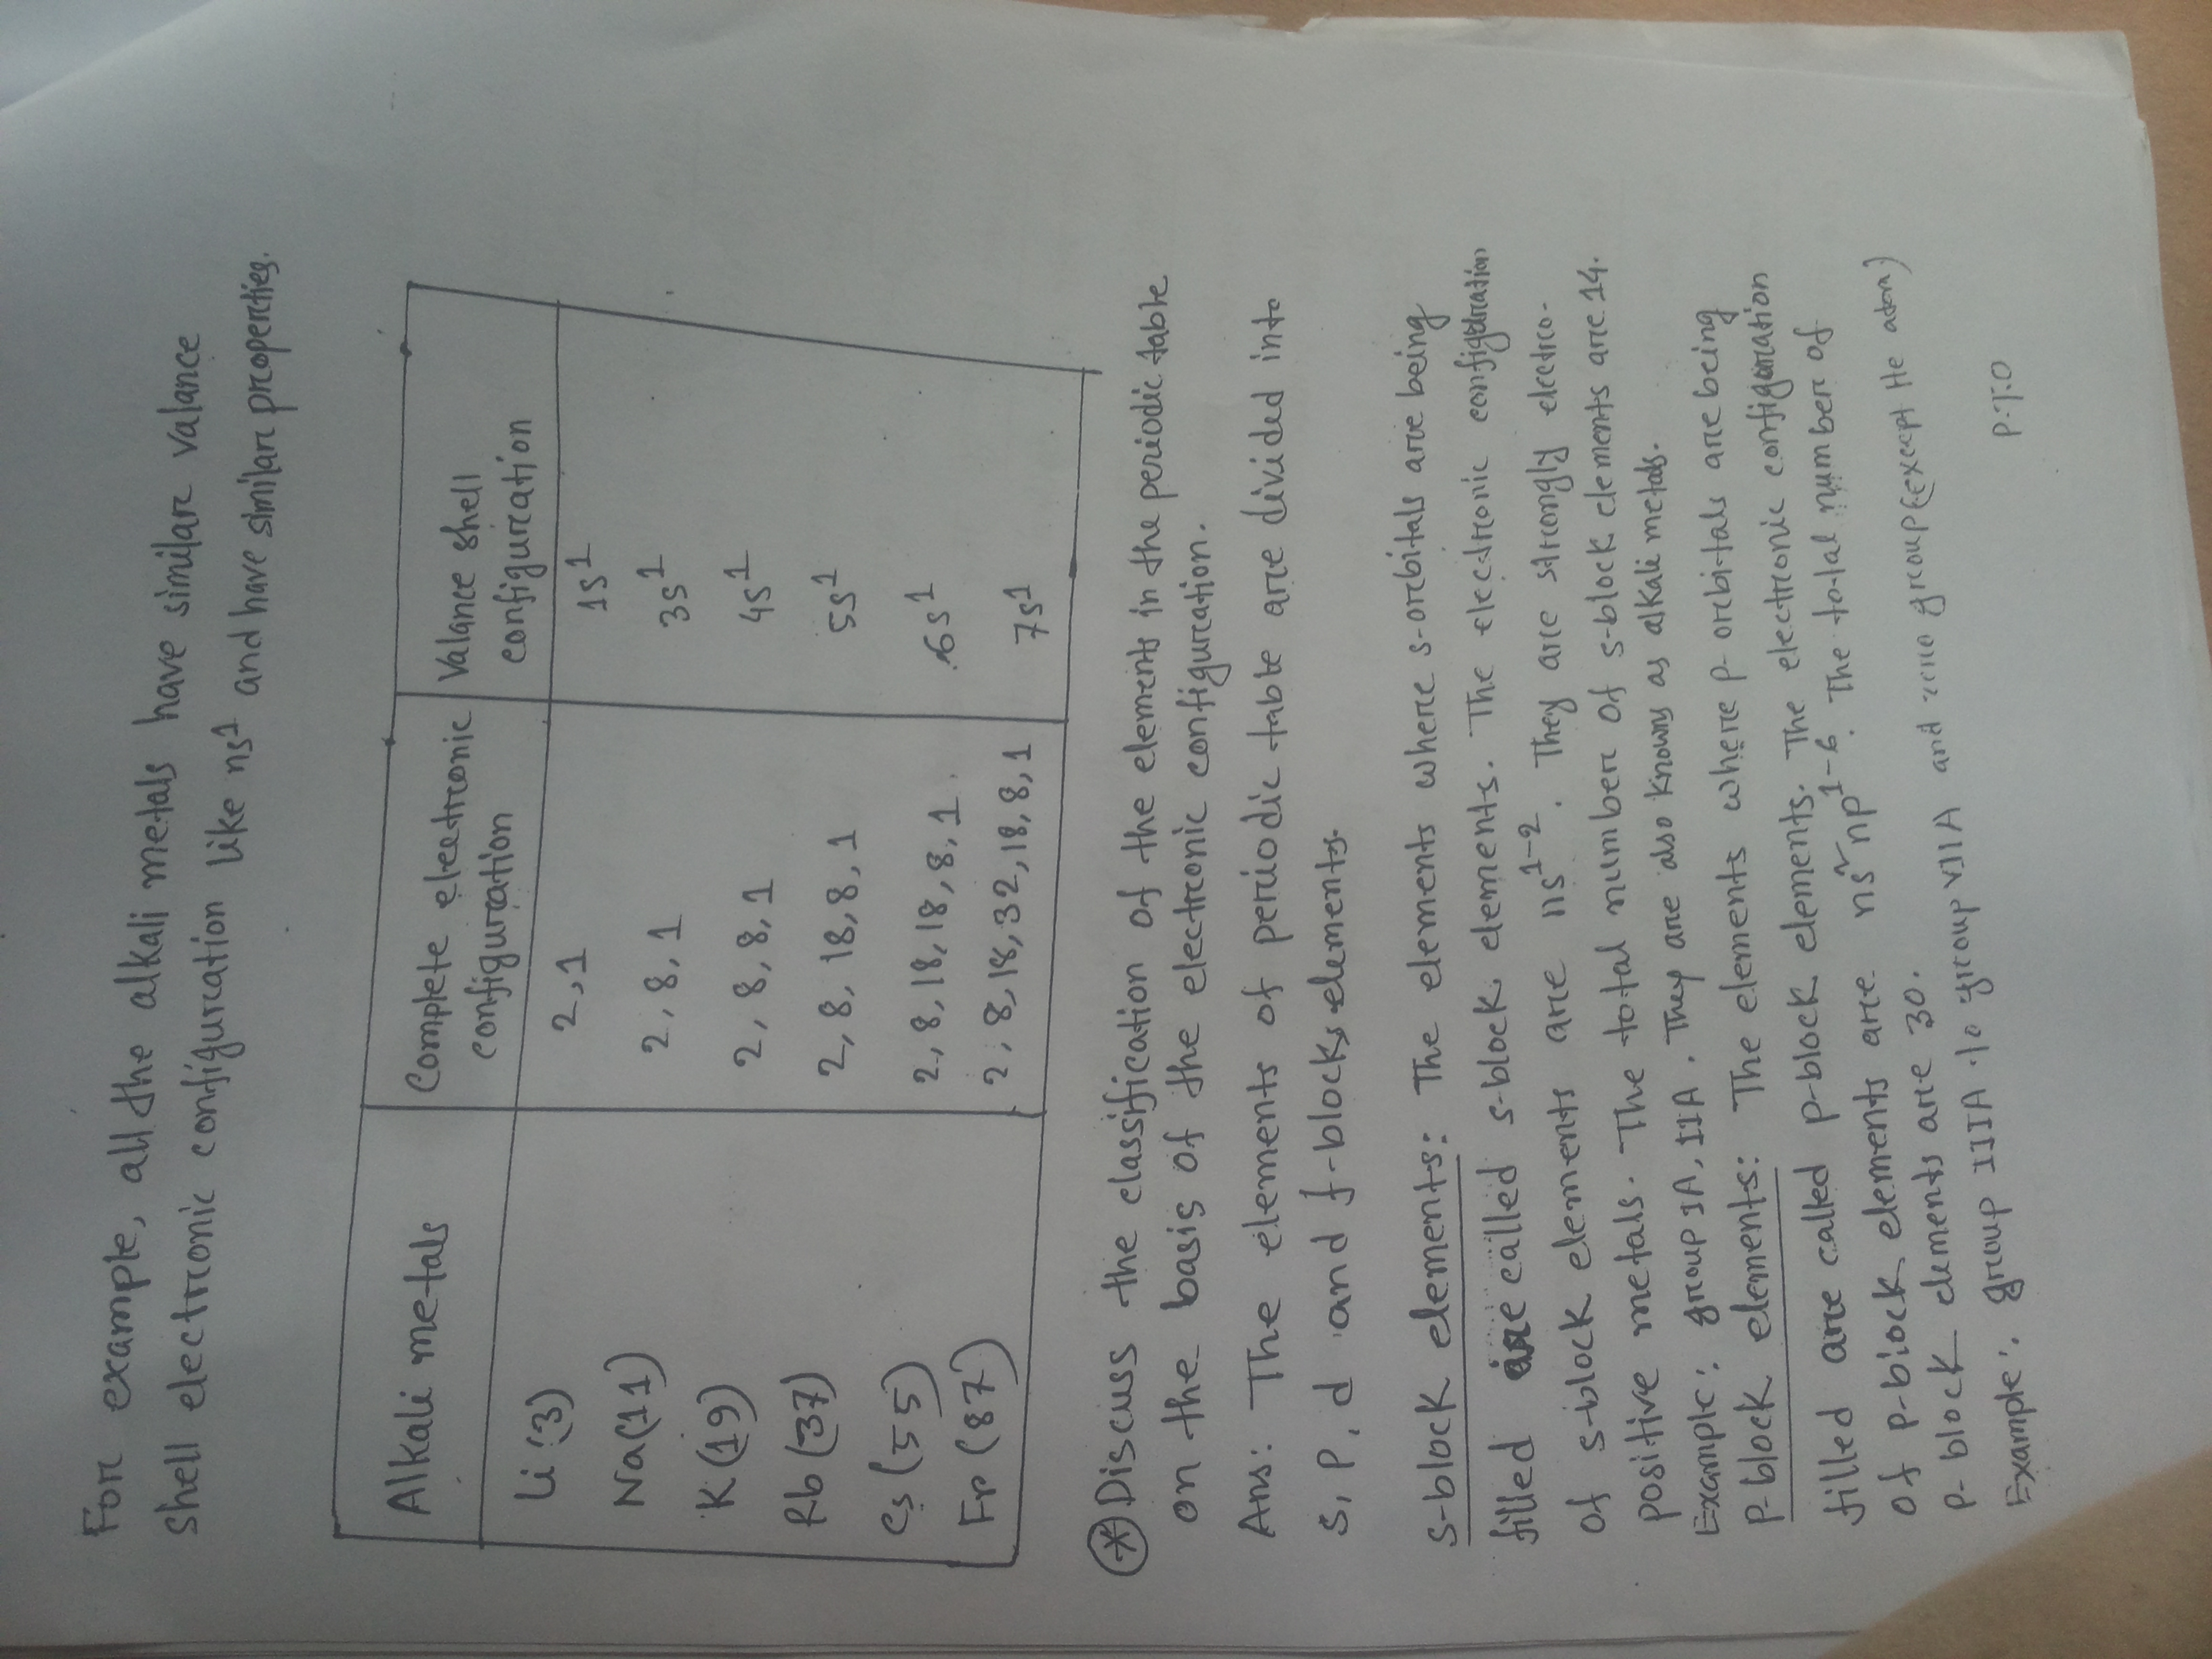 For example, all the alkali metals have similar valance
shell electronic configuration like ns¹ and have similar properties.
Alkali metals | Complete electronic configuration | Valance shell configuration
Li (3) | 2,1 | 1s¹
Na(11) | 2, 8, 1 | 3s¹
K (19) | 2, 8, 8, 1 | 4s¹
Rb (37) | 2, 8, 18, 8, 1 | 5s¹
Cs (55) | 2, 8, 18, 18, 8, 1 | 6s¹
Fr (87) | 2, 8, 18, 32, 18, 8, 1 | 7s¹
* Discuss the classification of the elements in the periodic table
on the basis of the electronic configuration.
Ans: The elements of periodic table are divided into
s, p, d and f-blocks elements.
s-block elements: The elements where s-orbitals are being
filled are called s-block elements. The electronic configuration
of s-block elements are ns¹⁻². They are strongly electro-
positive metals. The total number of s-block elements are 14.
Example: group IA, IIA. They are also knowns as alkali metals.
P-block elements: The elements where p-orbitals are being
filled are called p-block elements. The electronic configuration
of p-block elements are ns² np¹⁻⁶. The total number of
p-block elements are 30.
Example: group IIIA to group VIIA and zero group (except He atom)
P.T.O